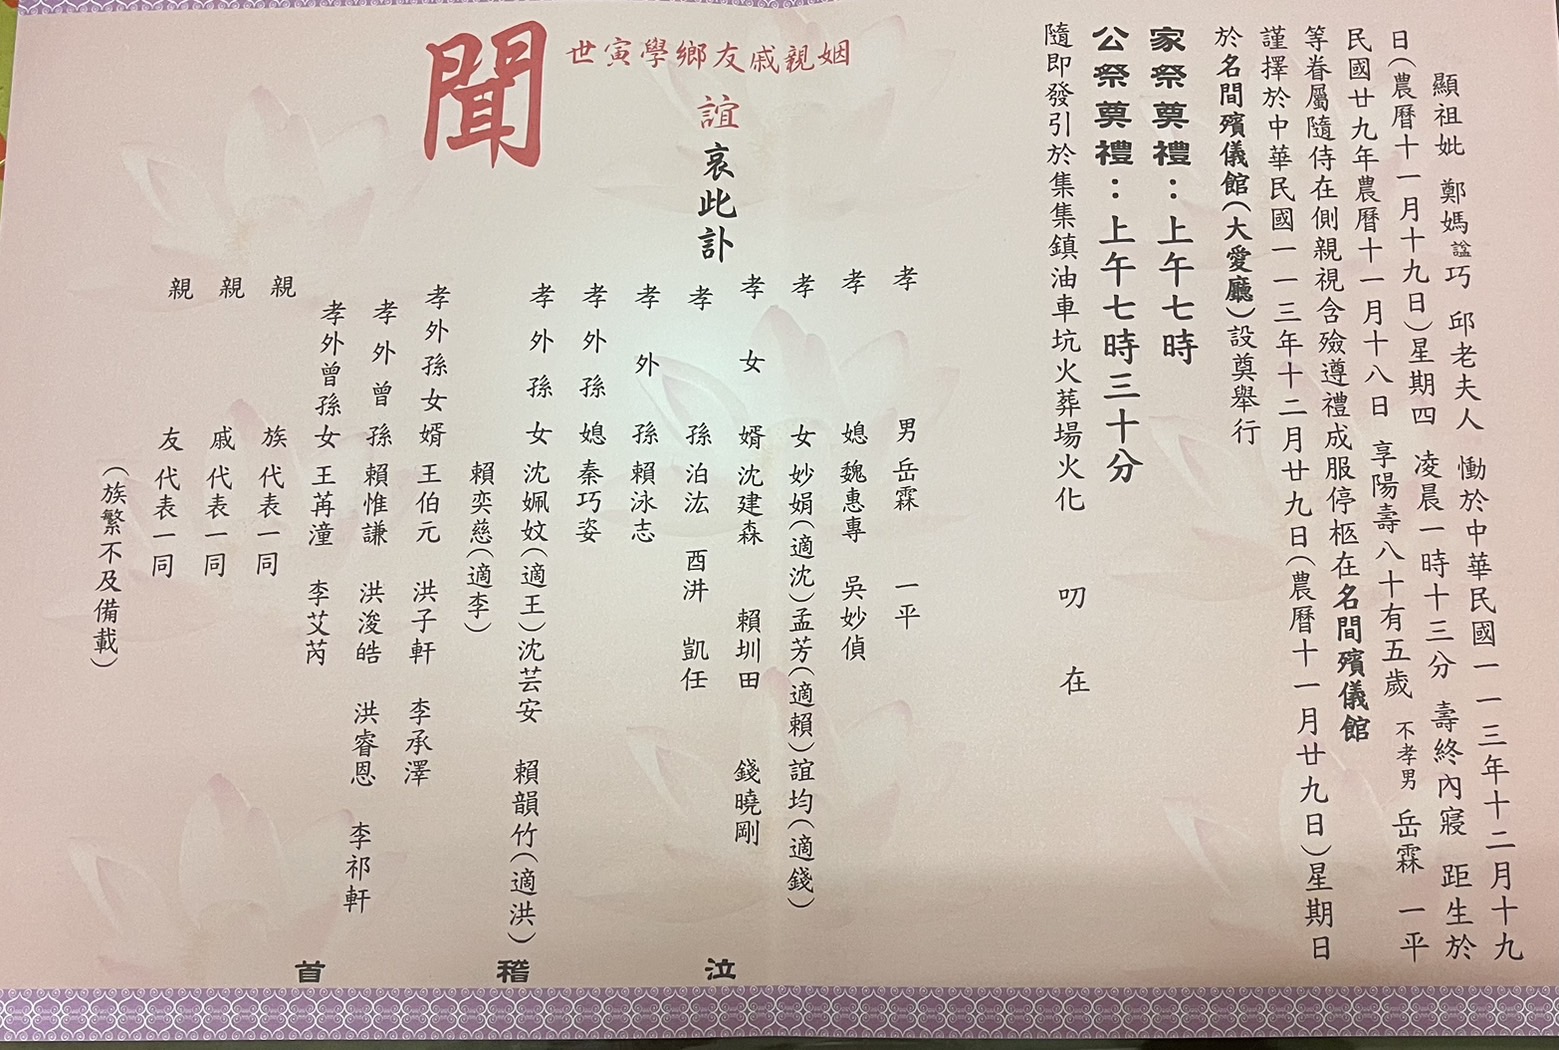 顯祖妣 鄭媽諡巧 邱老夫人 慟於中華民國一一三年十二月十九
日(農曆十一月十九日)星期四 凌晨一時十三分 壽終內寢 距生於
民國廿九年農曆十一月十八日 享陽壽八十有五歲 不孝男 岳霖 一平
等眷屬隨侍在側親視含殮遵禮成服停柩在名間殯儀館
謹擇於中華民國一一三年十二月廿九日(農曆十一月廿九日)星期日
於名間殯儀館(大愛廳)設奠舉行
家祭奠禮：上午七時
公祭奠禮：上午七時三十分
隨即發引於集集鎮油車坑火葬場火化 叨 在
世寅學鄉友戚親姻
誼哀此訃
聞
孝男 岳霖 一平
孝媳 魏惠專 吳妙偵
孝女 妙娟(適沈) 孟芳(適賴) 誼均(適錢)
孝女婿 沈建森 賴圳田 錢曉剛
孝孫 泊汯 酉汫 凱任
孝外孫 賴泳志
孝外孫媳 秦巧姿
孝外孫女 沈姵妏(適王) 沈芸安 賴韻竹(適洪)
賴奕慈(適李)
孝外孫女婿 王伯元 洪子軒 李承澤
孝外曾孫 賴惟謙 洪浚皓 洪睿恩 李祁軒
孝外曾孫女 王苒潼 李艾芮
親族代表一同
親戚代表一同
親友代表一同
(族繁不及備載)
泣稽首